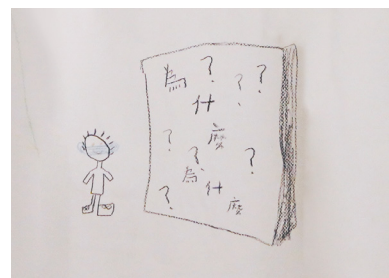 為？？？
什
？麼
？為什？
？麼